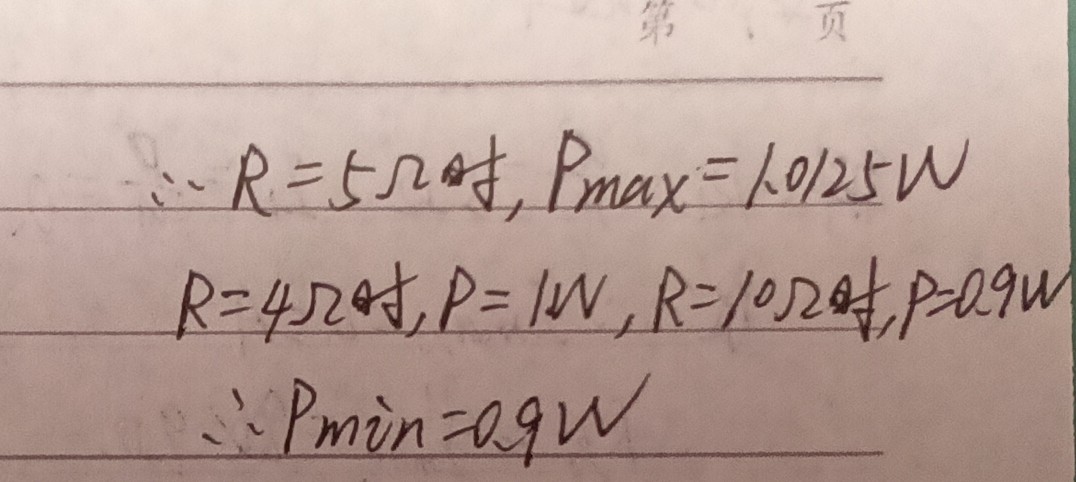 第 页
∴ R=5Ω时, Pmax=1.0125W
R=4Ω时, P=1W, R=10Ω时, P=0.9W
∴ Pmin=0.9W